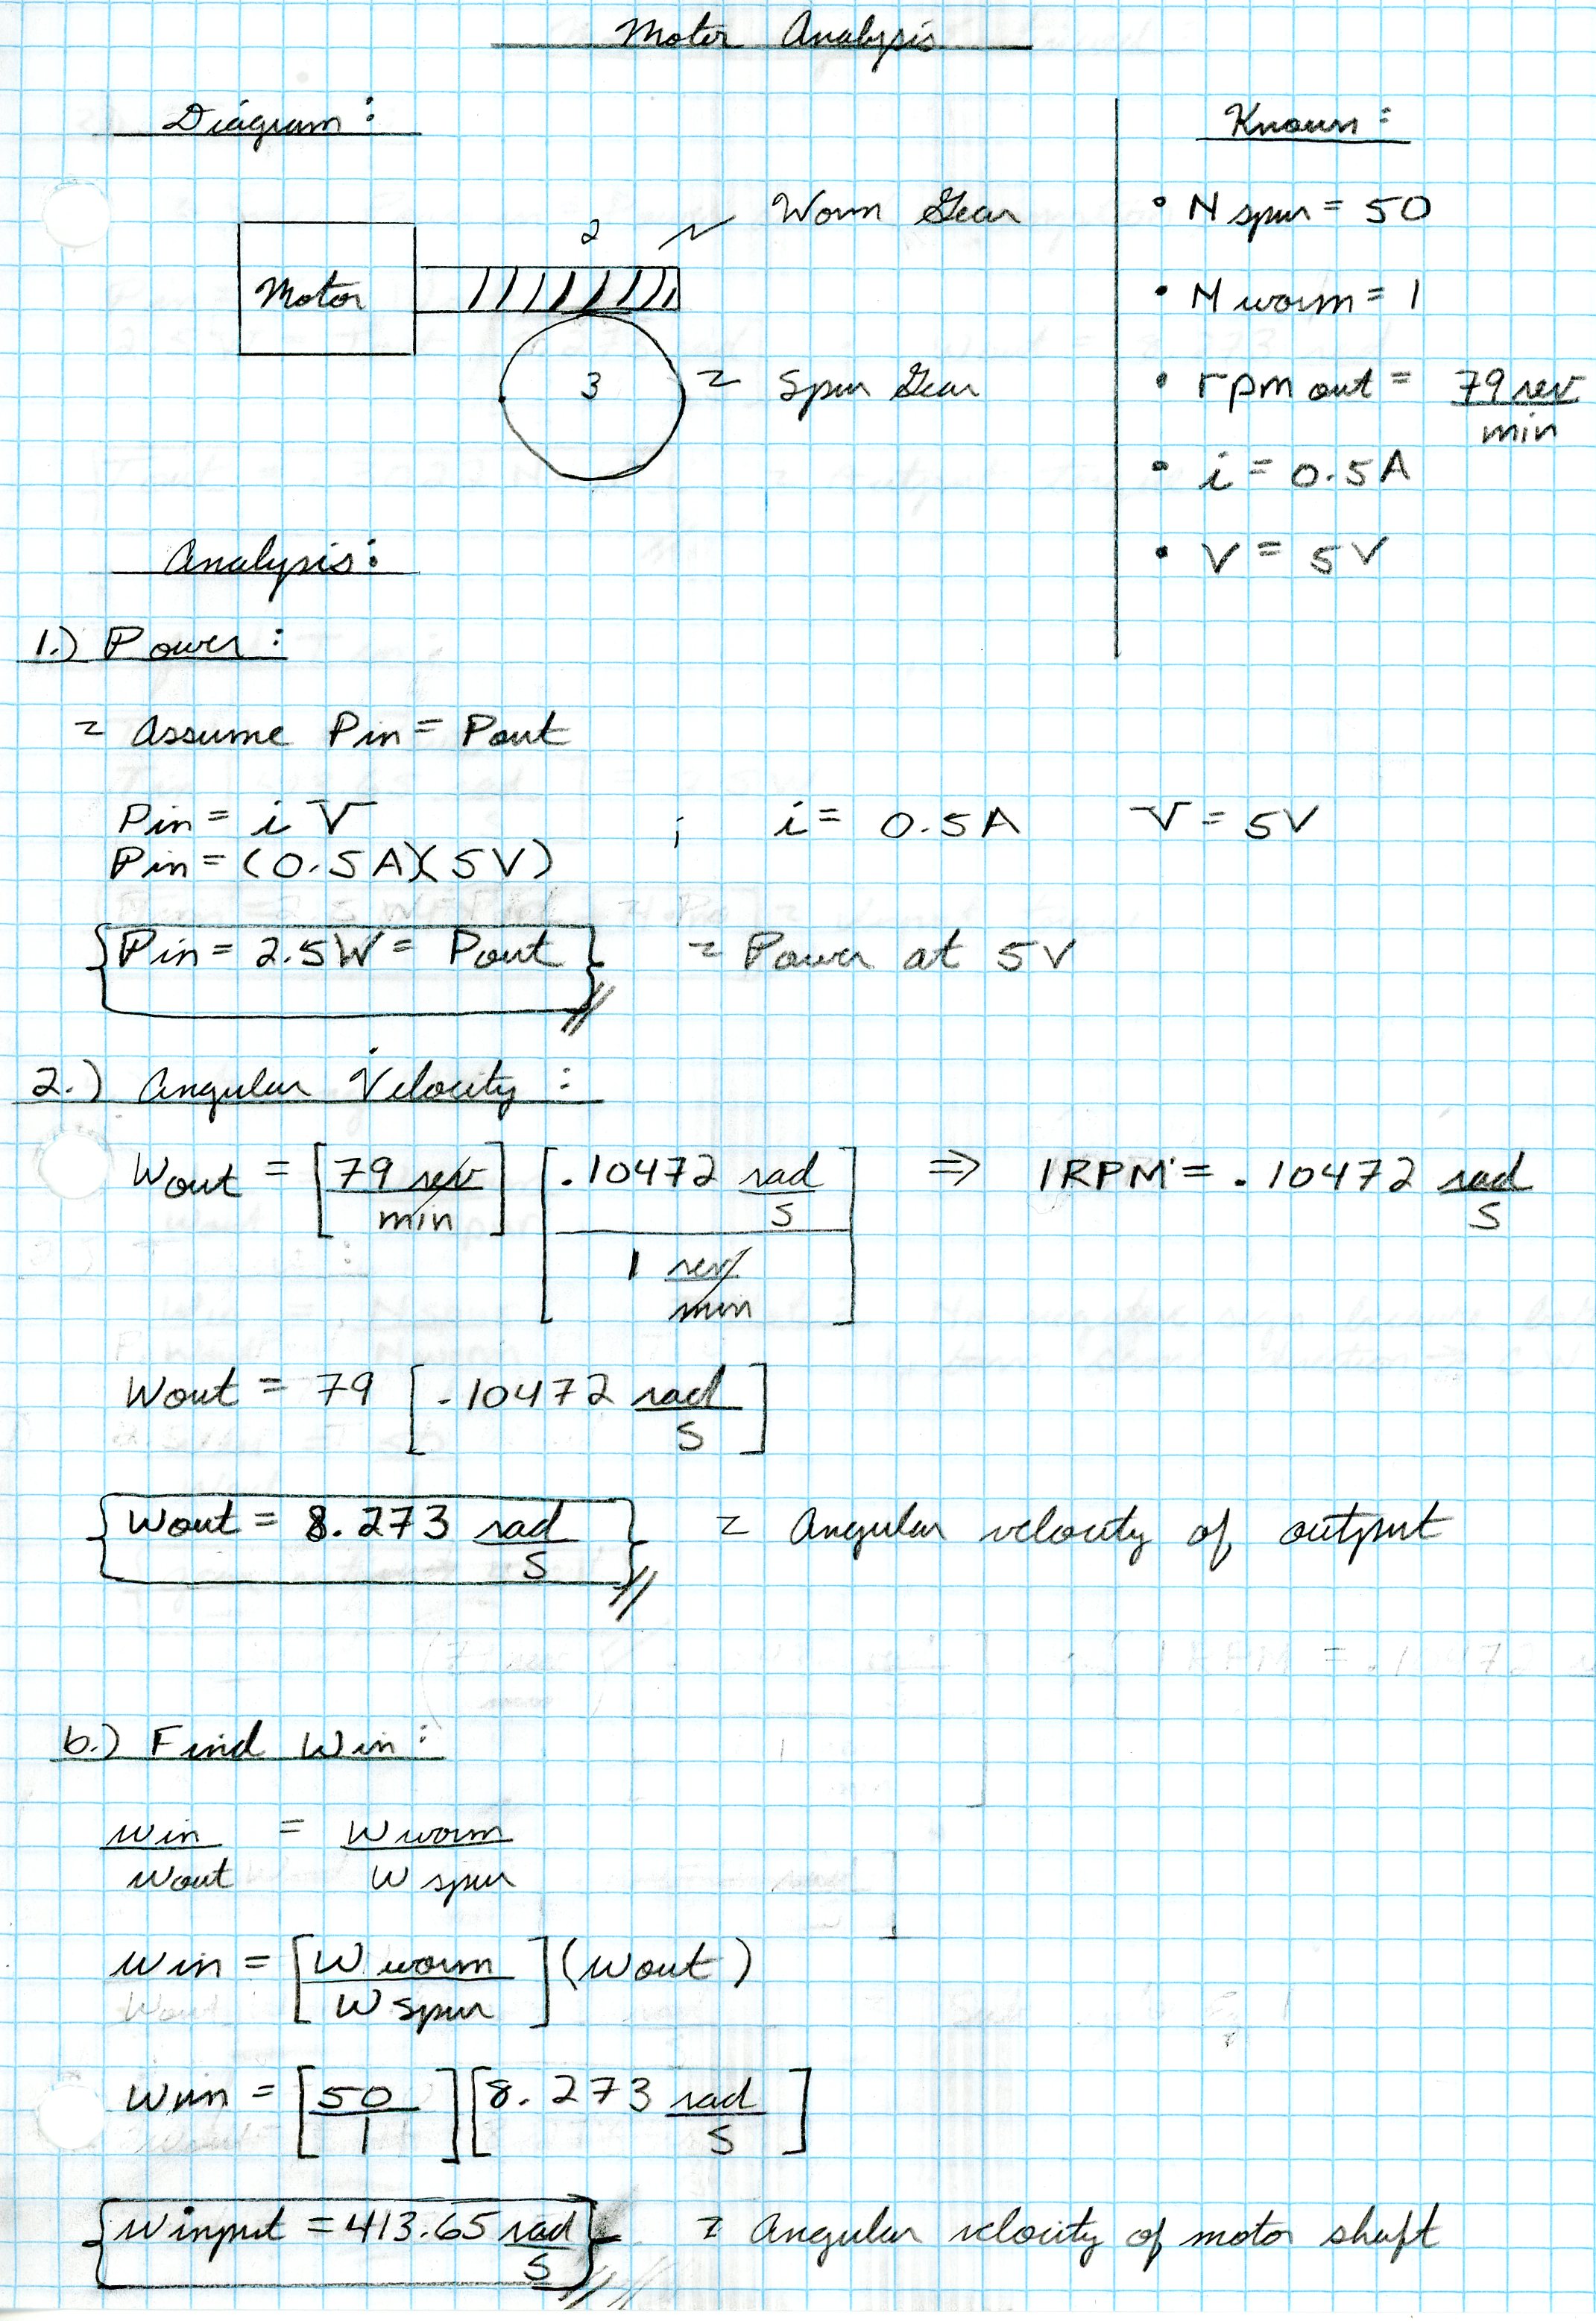 Motor Analysis
Diagram:
Known:
Worm Gear
2
Motor
3
Spur Gear
• N spur = 50
• N worm = 1
• rpm out = 79 rev
min
• i = 0.5A
• V = 5V
Analysis:
1.) Power:
= Assume Pin = Pout
Pin = i V ; i = 0.5A V = 5V
Pin = (0.5A)(5V)
Pin = 2.5W = Pout = Power at 5V
2.) Angular Velocity:
Wout = [79 rev/min] [.10472 rad/s / 1 rev/min] ⇒ 1RPM = .10472 rad/s
Wout = 79 [.10472 rad/s]
Wout = 8.273 rad/s = Angular velocity of output
b.) Find Win:
Win/Wout = W worm/W spur
Win = [W worm/W spur] (Wout)
Win = [50/1] [8.273 rad/s]
Winput = 413.65 rad/s = Angular velocity of motor shaft